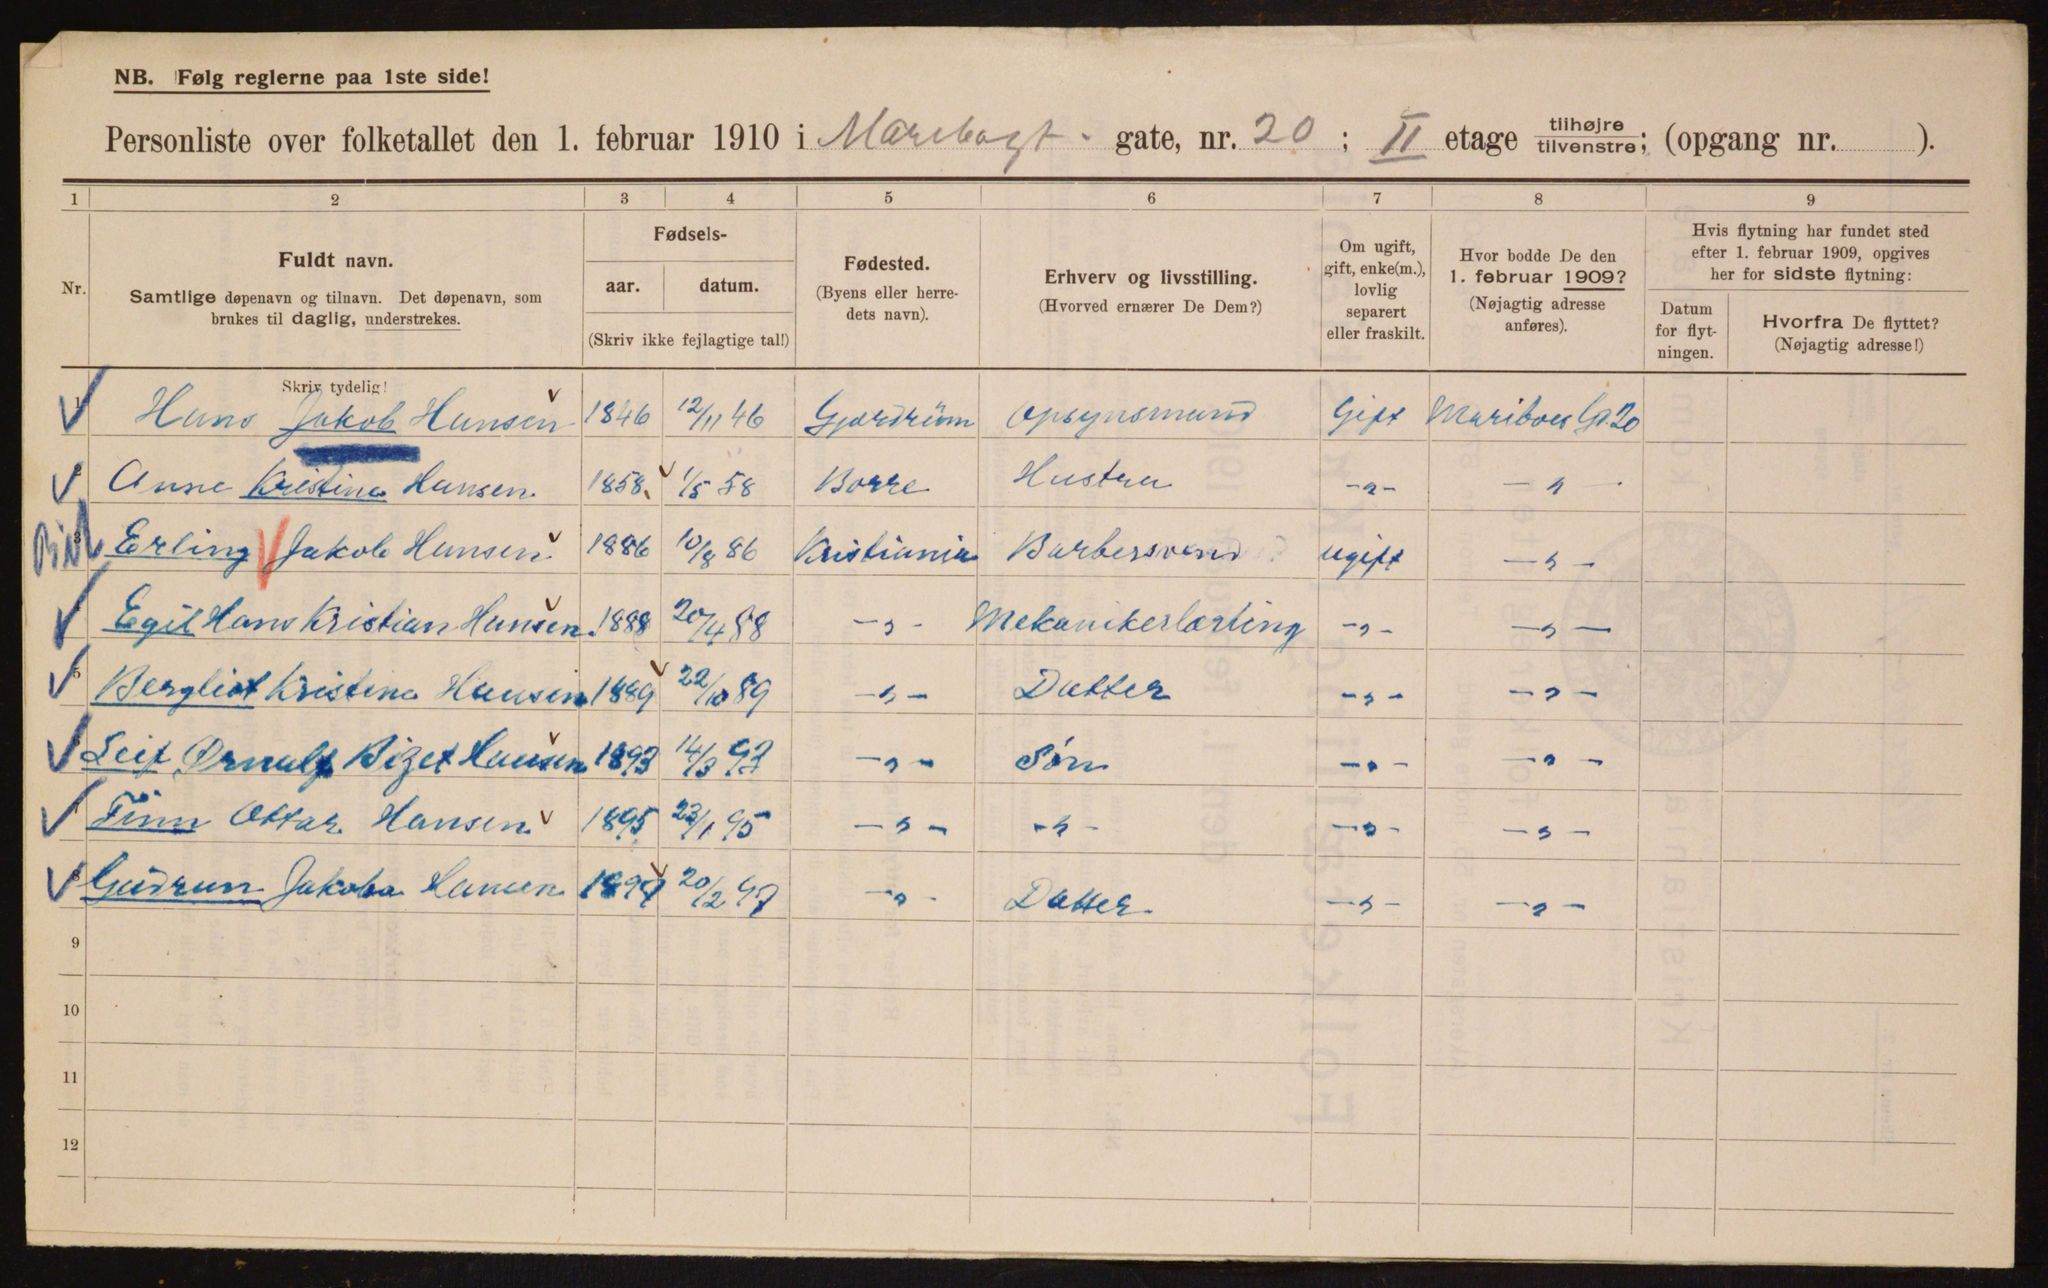 NB. Følg reglerne paa 1ste side!
Personliste over folketallet den 1. februar 1910 i Maribogt. gate, nr. 20 ; II etage tilhøjre tilvenstre; (opgang nr. ).
1 2 3 4 5 6 7 8 9
Nr.
Fuldt navn.
Samtlige døpenavn og tilnavn. Det døpenavn, som
brukes til daglig, understrekes.
Fødsels-
aar. datum.
(Skriv ikke fejlagtige tal!)
Fødested.
(Byens eller herre-
dets navn).
Erhverv og livsstilling.
(Hvorved ernærer De Dem?)
Om ugift,
gift, enke(m.),
lovlig
separert
eller fraskilt.
Hvor bodde De den
1. februar 1909?
(Nøjagtig adresse
anføres).
Hvis flytning har fundet sted
efter 1. februar 1909, opgives
her for sidste flytning:
Datum
for flyt-
ningen.
Hvorfra De flyttet?
(Nøjagtig adresse!)
Skriv tydelig!
1 Hans Jakob Hansen 1846 12/11 46 Gjerdrüm Opsynsmand Gift Mariboes Gt. 20
2 Anne Kristine Hansen 1858 1/5 58 Borre Hustru -"- -"-
3 Erling Jakob Hansen 1886 10/8 86 Kristiania Barbersvend ugift -"-
Egil Hans Kristian Hansen 1888 20/4 88 -"- Mekanikerlærling -"- -"-
5 Bergliot Kristine Hansen 1889 22/10 89 -"- Datter -"- -"-
Leif Ørnulf Bizet Hansen 1893 14/3 93 -"- Søn -"- -"-
Finn Ottar Hansen 1895 23/1 95 -"- -"- -"- -"-
8 Gudrun Jakoba Hansen 1897 20/2 97 -"- Datter -"- -"-
9
10
11
12